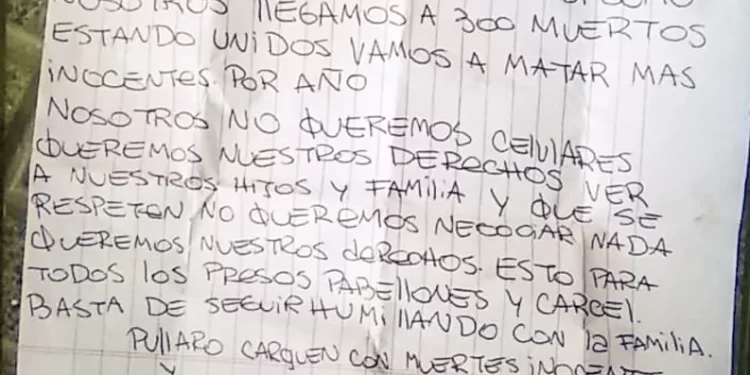 NOSOTROS LLEGAMOS A 300 MUERTOS
ESTANDO UNIDOS VAMOS A MATAR MAS
INOCENTES POR AÑO
NOSOTROS NO QUEREMOS CELULARES
QUEREMOS NUESTROS DERECHOS VER
A NUESTROS HIJOS Y FAMILIA Y QUE SE
RESPETEN NO QUEREMOS NEGOCIAR NADA
QUEREMOS NUESTROS DERECHOS. ESTO PARA
TODOS LOS PRESOS PABELLONES Y CARCEL.
BASTA DE SEGUIR HUMILLANDO CON la FAMILIA.
PULLARO CARGUEN CON MUERTES INOCENTE
Y